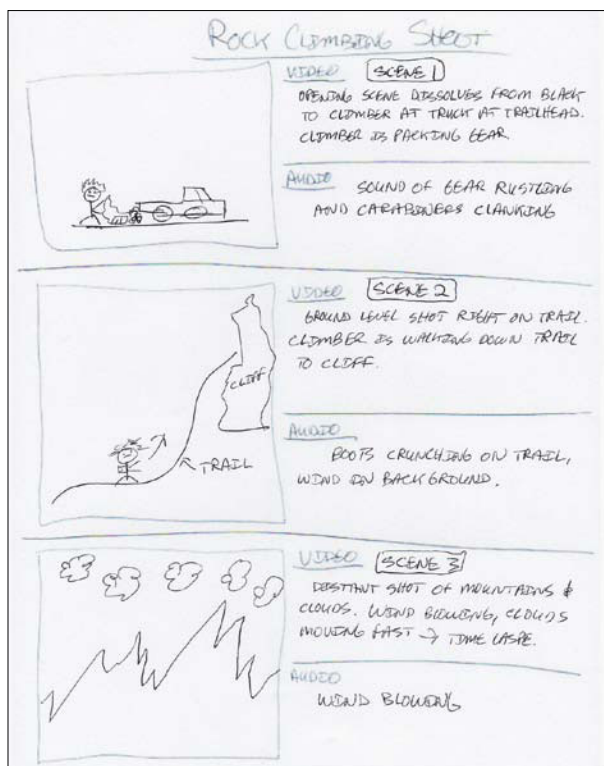 ROCK CLIMBING SHOOT
VIDEO SCENE 1
OPENING SCENE DISSOLVES FROM BLACK
TO CLIMBER AT TRUCK AT TRAILHEAD.
CLIMBER IS PACKING GEAR
AUDIO SOUND OF GEAR RUSTLING
AND CARABINERS CLANKING
VIDEO SCENE 2
GROUND LEVEL SHOT RIGHT ON TRAIL.
CLIMBER IS WALKING DOWN TRAIL
TO CLIFF.
CLIFF
TRAIL
AUDIO
BOOTS CRUNCHING ON TRAIL,
WIND IN BACKGROUND.
VIDEO SCENE 3
DISTTANT SHOT OF MOUNTAINS &
CLOUDS. WIND BLOWING, CLOUDS
MOVING FAST → TIME LASPE.
AUDIO
WIND BLOWING